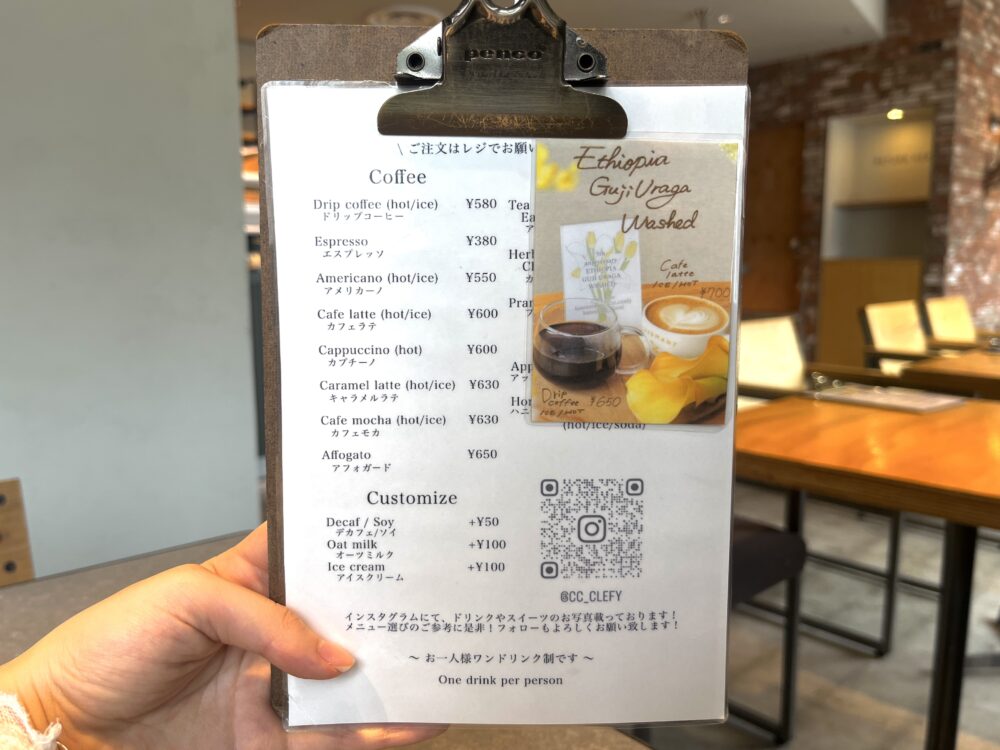 penco
\ ご注文はレジでお願い
Coffee
Drip coffee (hot/ice) ¥580
ドリップコーヒー
Espresso ¥380
エスプレッソ
Americano (hot/ice) ¥550
アメリカーノ
Cafe latte (hot/ice) ¥600
カフェラテ
Cappuccino (hot) ¥600
カプチーノ
Caramel latte (hot/ice) ¥630
キャラメルラテ
Cafe mocha (hot/ice) ¥630
カフェモカ
Affogato ¥650
アフォガード
Customize
Decaf / Soy +¥50
デカフェ/ソイ
Oat milk +¥100
オーツミルク
Ice cream +¥100
アイスクリーム
Tea
Ea
ア
Herl
Cl
カ
Pran
フ
App
アッ
Hon
ハニ
(hot/ice/soda)
Ethiopia
Guji Uraga
Washed
ETHIOPIA
GUJI URAGA
WASHED
Cafe
latte
ICE/HOT
¥700
Drip
coffee ¥650
ICE/HOT
@CC_CLEFY
インスタグラムにて、ドリンクやスイーツのお写真載っております！
メニュー選びのご参考に是非！フォローもよろしくお願い致します！
～ お一人様ワンドリンク制です ～
One drink per person